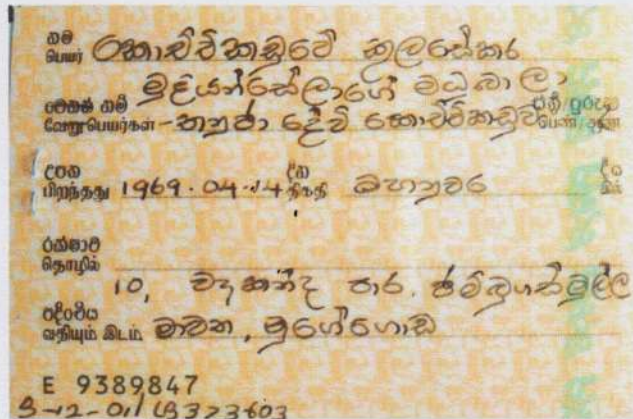 නම කොච්චිකඩුවේ කුලසේකර
பெயர் මුදියන්සේලාගේ මධුබාලා
වෙනත් නම්
வேறு பெயர்கள் - තනුජා දේවි කොච්චිකඩුවේ ස්ත්‍රී/පුරුෂ பெண்/ஆண்
උපන් දින
பிறந்தது 1969.04.14 திகதி මහනුවර
රක්ෂාව
தொழில்
10, පාර. ජම්බුගස්මුල්ල
පදිංචිය
வதியும் இடம் මාවත, නුගේගොඩ
E 9389847